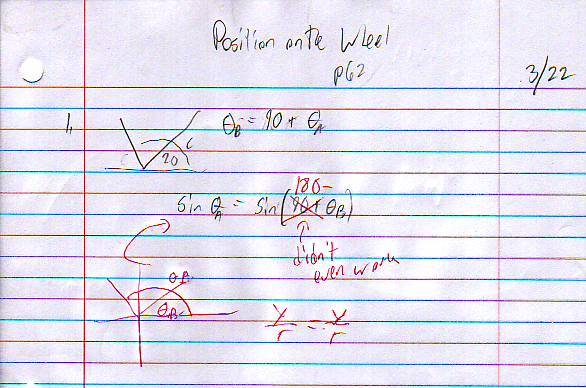 Position on the Wheel
p62
3/22
1.
20
θB = 90 + θA
180-
Sin θA = Sin(90+ θB)
↑
didn't
even work
θB
y/r = y/r